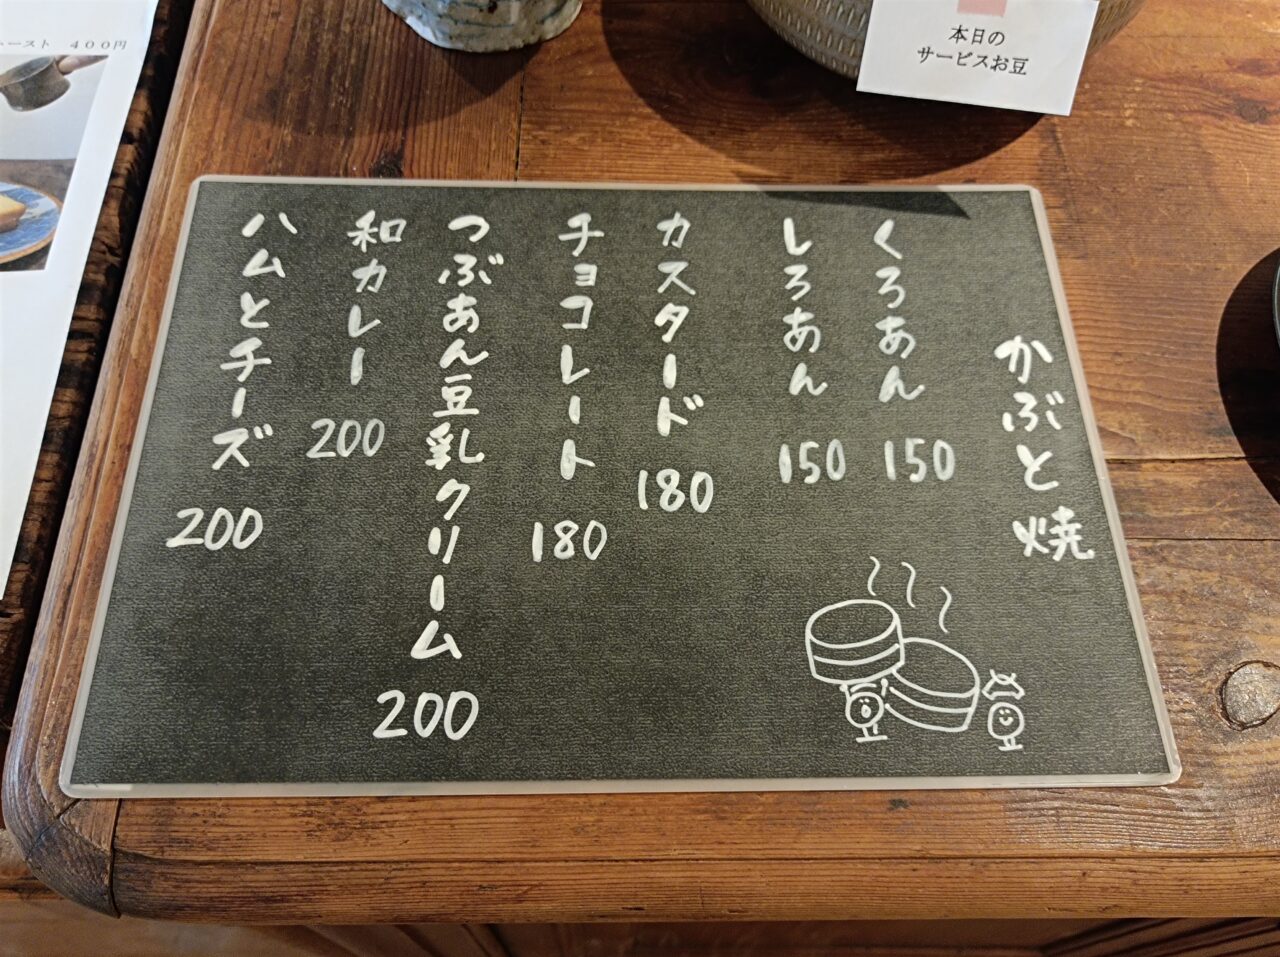 かぶと焼
くろあん 150
しろあん 150
カスタード 180
チョコレート 180
つぶあん豆乳クリーム 200
和カレー 200
ハムとチーズ 200
本日の
サービスお豆
ースト 400円